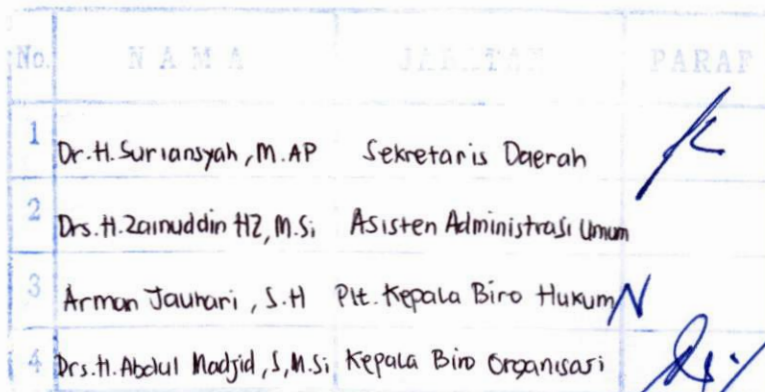 No. NAMA JABATAN PARAF
1 Dr. H. Suriansyah, M. AP Sekretaris Daerah
2 Drs. H. Zainuddin HZ, M.Si Asisten Administrasi Umum
3 Arman Jauhari, S.H Plt. Kepala Biro Hukum
4 Drs. H. Abdul Madjid, S, M.Si Kepala Biro Organisasi